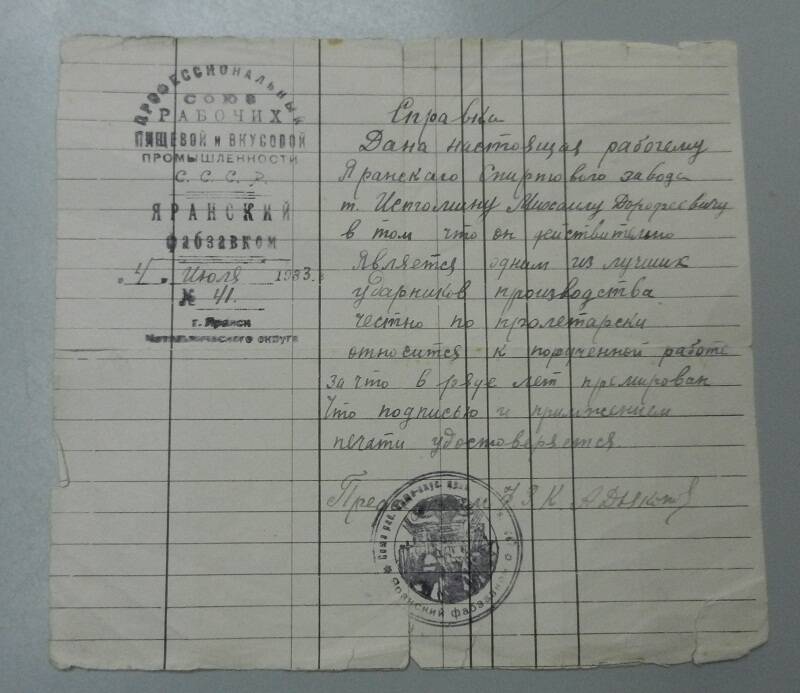 ПРОФЕССИОНАЛЬНЫЙ
СОЮЗ
РАБОЧИХ
ПИЩЕВОЙ и ВКУСОВОЙ
ПРОМЫШЛЕННОСТИ
С. С. С. Р.
ЯРАНСКИЙ
фабзавком
4 Июля 1933 г.
№ 41.
г. Яранск
округа
Справка
Дана настоящая рабочему
Яранскаго Спиртового завода
т. Истомину Михаилу Дорофеевичу
в том что он действительно
Является одним из лучших
ударников производства
честно по пролетарски
относится к порученной работе
за что в ряде лет премирован
Что подписью и приложением
печати удостоверяется.
Пред ФЗК
Союз раб.
Яранский фабзавком